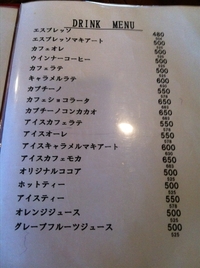 DRINK MENU
エスプレッソ 480
エスプレッソマキアート 500
カフェオレ 500
ウインナーコーヒー 500
カフェラテ 500
キャラメルラテ 600
カプチーノ 500
カフェショコラータ 650
カプチーノコンカカオ 650
アイスカフェラテ 550
アイスオーレ 550
アイスキャラメルマキアート 600
アイスカフェモカ 650
オリジナルココア 500
ホットティー 500
アイスティー 550
オレンジジュース 500
グレープフルーツジュース 500